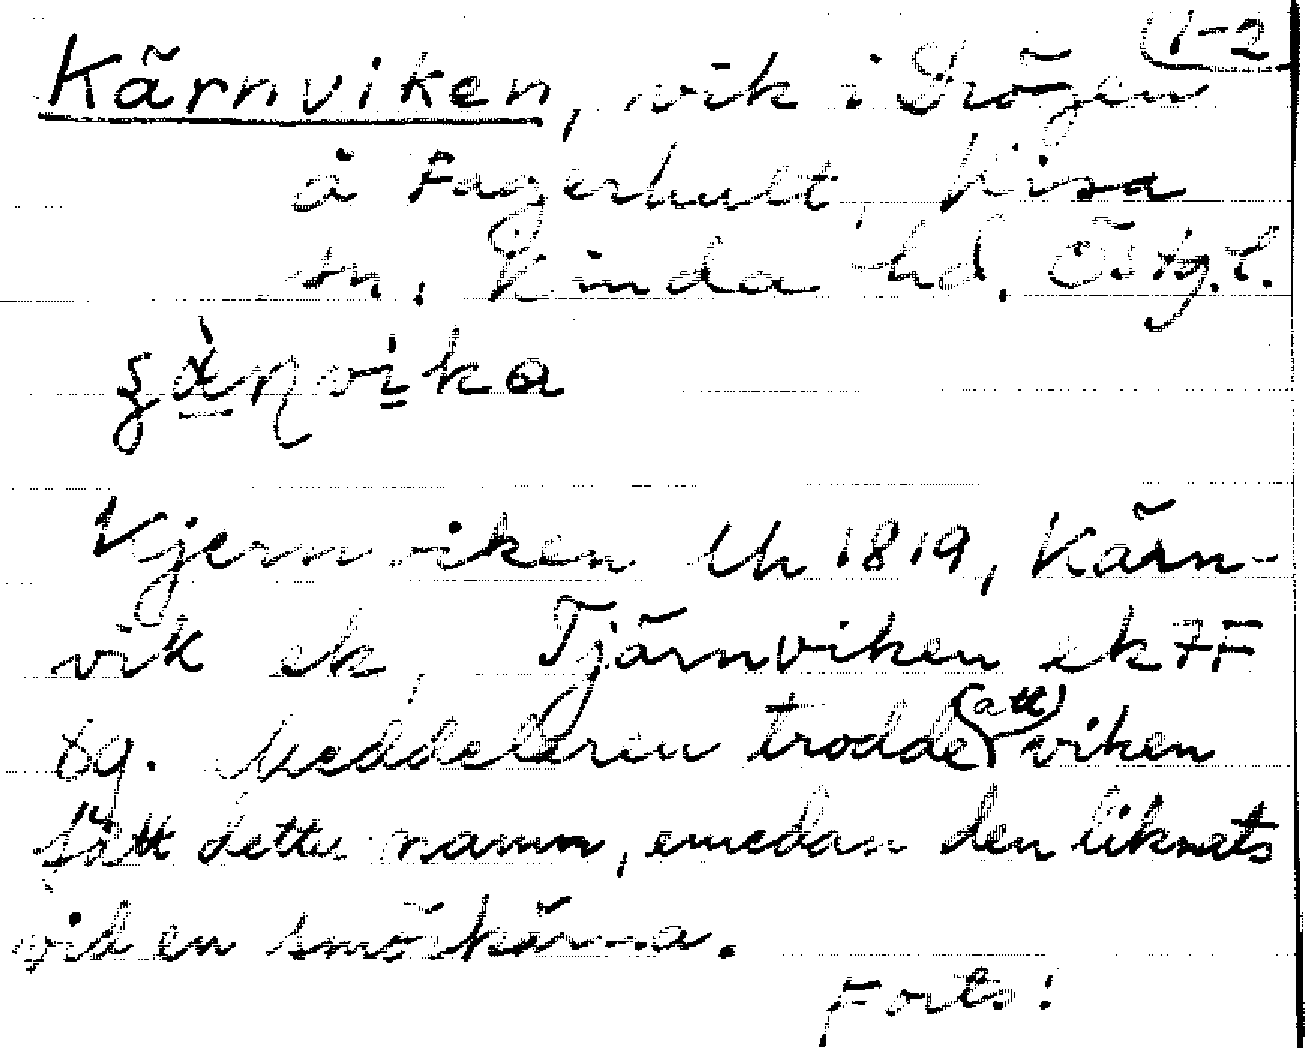 1-2
Kärnviken, vik i Drögen
å Fagerhult, Kisa
sn, Kinda hd, Östg.l.
Kjernviken Uh 1819, Kärn-
vik ek, Tjärnviken ek 7F
tg. Meddelaren trodde (att) viken
fått detta namn, emedan den liknats
vid en smörkärna.
Forts!